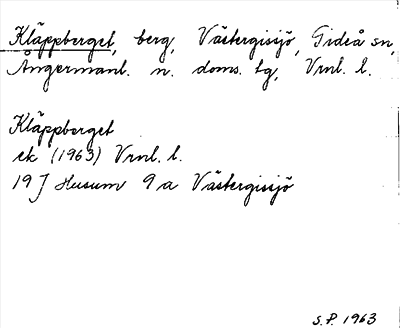 Kläppberget, berg, Västergisijö, Gideå sn,
Ångermanl. n. doms. lg, Vrnl. l.
Kläppberget
ek (1963) Vrnl. l.
19J Husum 9a Västergisijö
S.P. 1963